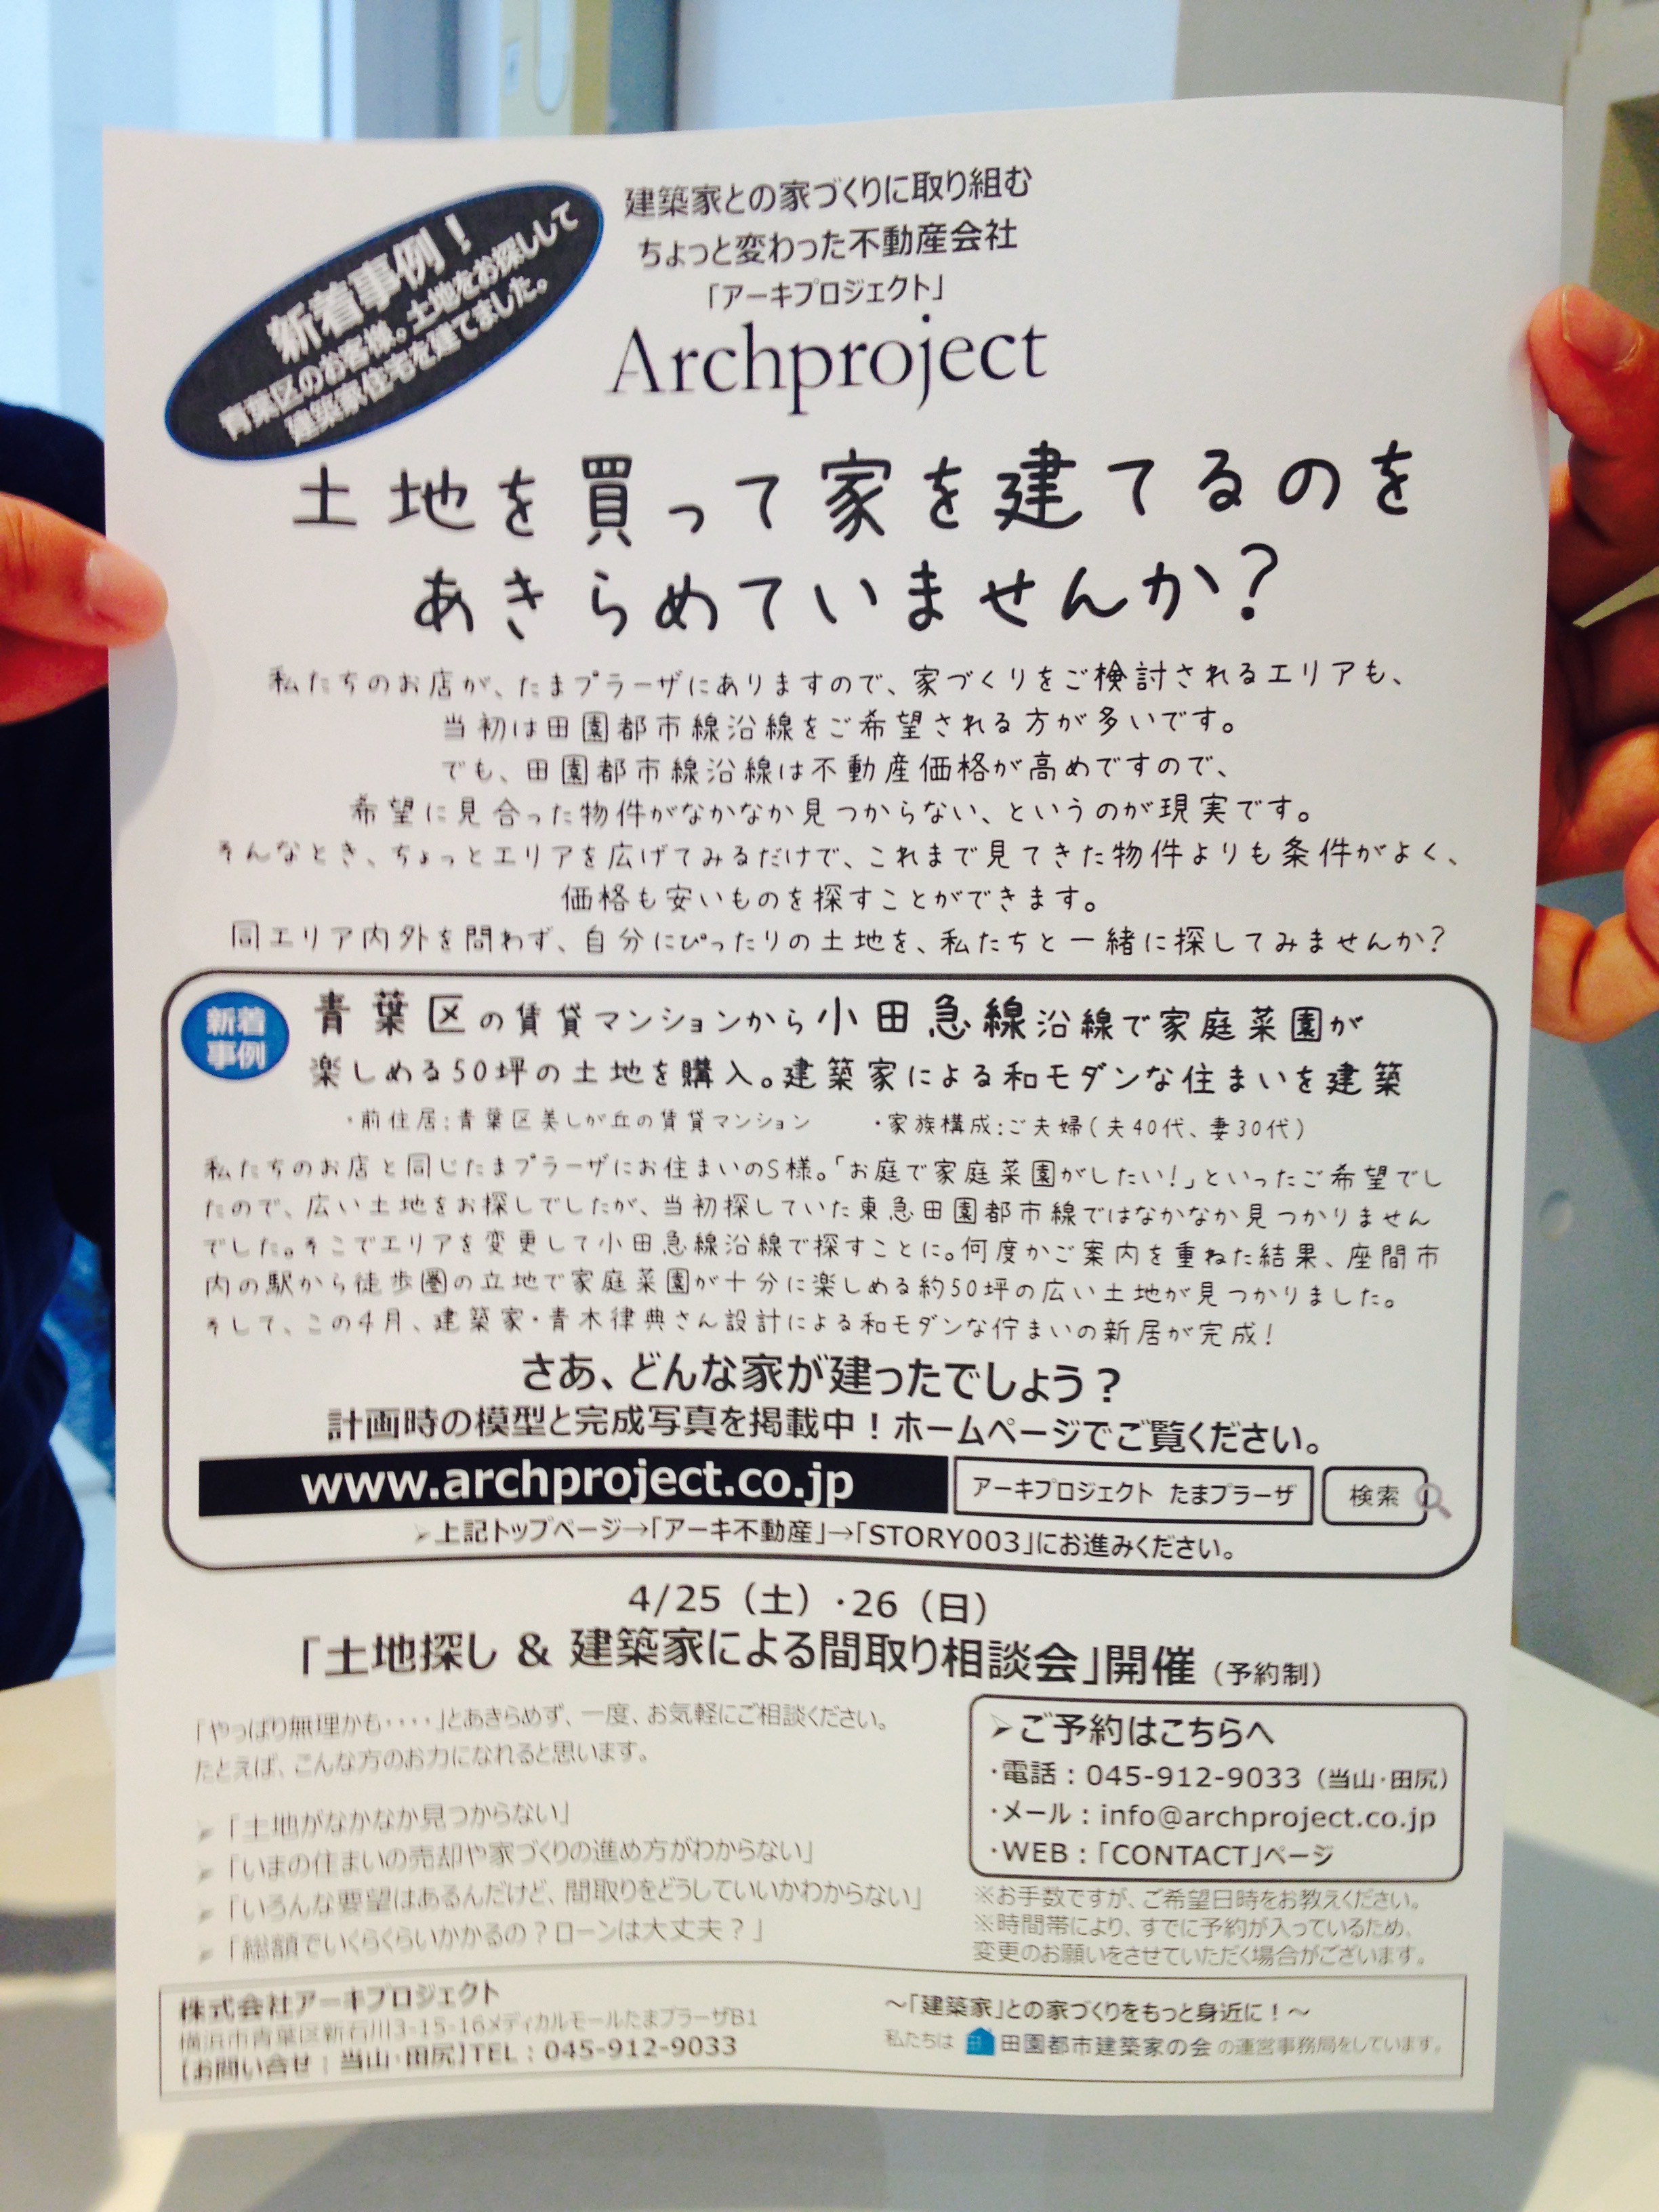 新着事例！
青葉区のお客様。土地をお探しして
建築家住宅を建てました。
建築家との家づくりに取り組む
ちょっと変わった不動産会社
「アーキプロジェクト」
Archproject
土地を買って家を建てるのを
あきらめていませんか?
私たちのお店が、たまプラーザにありますので、家づくりをご検討されるエリアも、
当初は田園都市線沿線をご希望される方が多いです。
でも、田園都市線沿線は不動産価格が高めですので、
希望に見合った物件がなかなか見つからない、というのが現実です。
そんなとき、ちょっとエリアを広げてみるだけで、これまで見てきた物件よりも条件がよく、
価格も安いものを探すことができます。
同エリア内外を問わず、自分にぴったりの土地を、私たちと一緒に探してみませんか?
新着
事例
青葉区の賃貸マンションから小田急線沿線で家庭菜園が
楽しめる50坪の土地を購入。建築家による和モダンな住まいを建築
・前住居:青葉区美しが丘の賃貸マンション ・家族構成:ご夫婦(夫40代、妻30代)
私たちのお店と同じたまプラーザにお住まいのS様。「お庭で家庭菜園がしたい!」といったご希望でし
たので、広い土地をお探しでしたが、当初探していた東急田園都市線ではなかなか見つかりません
でした。そこでエリアを変更して小田急線沿線で探すことに。何度かご案内を重ねた結果、座間市
内の駅から徒歩圏の立地で家庭菜園が十分に楽しめる約50坪の広い土地が見つかりました。
そして、この4月、建築家・青木律典さん設計による和モダンな佇まいの新居が完成!
さあ、どんな家が建ったでしょう？
計画時の模型と完成写真を掲載中！ホームページでご覧ください。
www.archproject.co.jp アーキプロジェクト たまプラーザ 検索
➢上記トップページ→「アーキ不動産」→「STORY003」にお進みください。
4/25（土）・26（日）
「土地探し & 建築家による間取り相談会」開催（予約制）
「やっぱり無理かも・・・・」とあきらめず、一度、お気軽にご相談ください。
たとえば、こんな方のお力になれると思います。
➢「土地がなかなか見つからない」
➢「いまの住まいの売却や家づくりの進め方がわからない」
➢「いろんな要望はあるんだけど、間取りをどうしていいかわからない」
➢「総額でいくらくらいかかるの？ローンは大丈夫？」
➢ご予約はこちらへ
・電話：045-912-9033（当山・田尻）
・メール：info@archproject.co.jp
・WEB：「CONTACT」ページ
※お手数ですが、ご希望日時をお教えください。
※時間帯により、すでに予約が入っているため、
変更のお願いをさせていただく場合がございます。
株式会社アーキプロジェクト
横浜市青葉区新石川3-15-16メディカルモールたまプラーザB1
【お問い合せ：当山・田尻】TEL：045-912-9033
～「建築家」との家づくりをもっと身近に！～
私たちは 田園都市建築家の会 の運営事務局をしています。